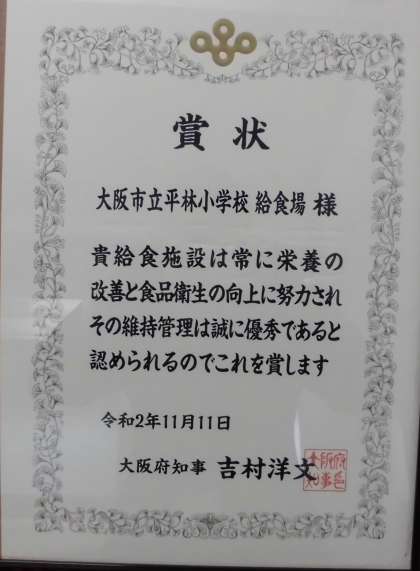 賞状
大阪市立平林小学校 給食場 様
貴給食施設は常に栄養の
改善と食品衛生の向上に努力され
その維持管理は誠に優秀であると
認められるのでこれを賞します
令和2年11月11日
大阪府知事 吉村洋文
大阪府
知事邑